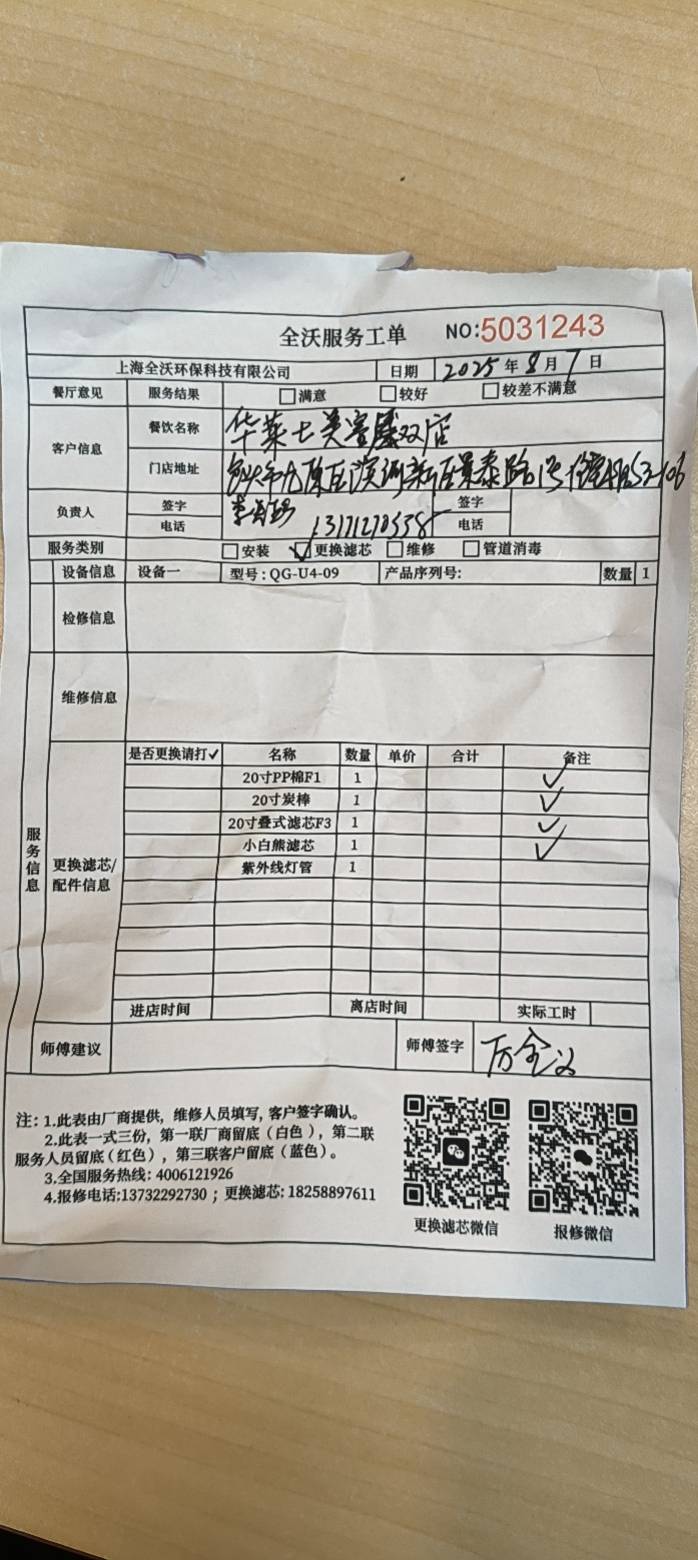 全沃服务工单 NO:5031243
上海全沃环保科技有限公司 日期 2025年8月7日
餐厅意见 服务结果 满意 较好 较差不满意
客户信息 餐饮名称 华莱士美客多双店
门店地址 包头市九原区滨河新区景泰路1号
负责人 签字 签字
电话 电话
服务类别 安装 ✓更换滤芯 维修 管道消毒
设备信息 设备一 型号:QG-U4-09 产品序列号: 数量 1
检修信息
维修信息
服务信息
更换滤芯/配件信息
是否更换请打✓ 名称 数量 单价 合计 备注
20寸PP棉F1 1 ✓
20寸炭棒 1 ✓
20寸叠式滤芯F3 1 ✓
小白熊滤芯 1 ✓
紫外线灯管 1
进店时间 离店时间 实际工时
师傅建议 师傅签字
注: 1.此表由厂商提供, 维修人员填写, 客户签字确认。
2.此表一式三份, 第一联厂商留底 (白色), 第二联
服务人员留底 (红色), 第三联客户留底 (蓝色)。
3.全国服务热线: 4006121926
4.报修电话:13732292730 ; 更换滤芯: 18258897611
更换滤芯微信 报修微信